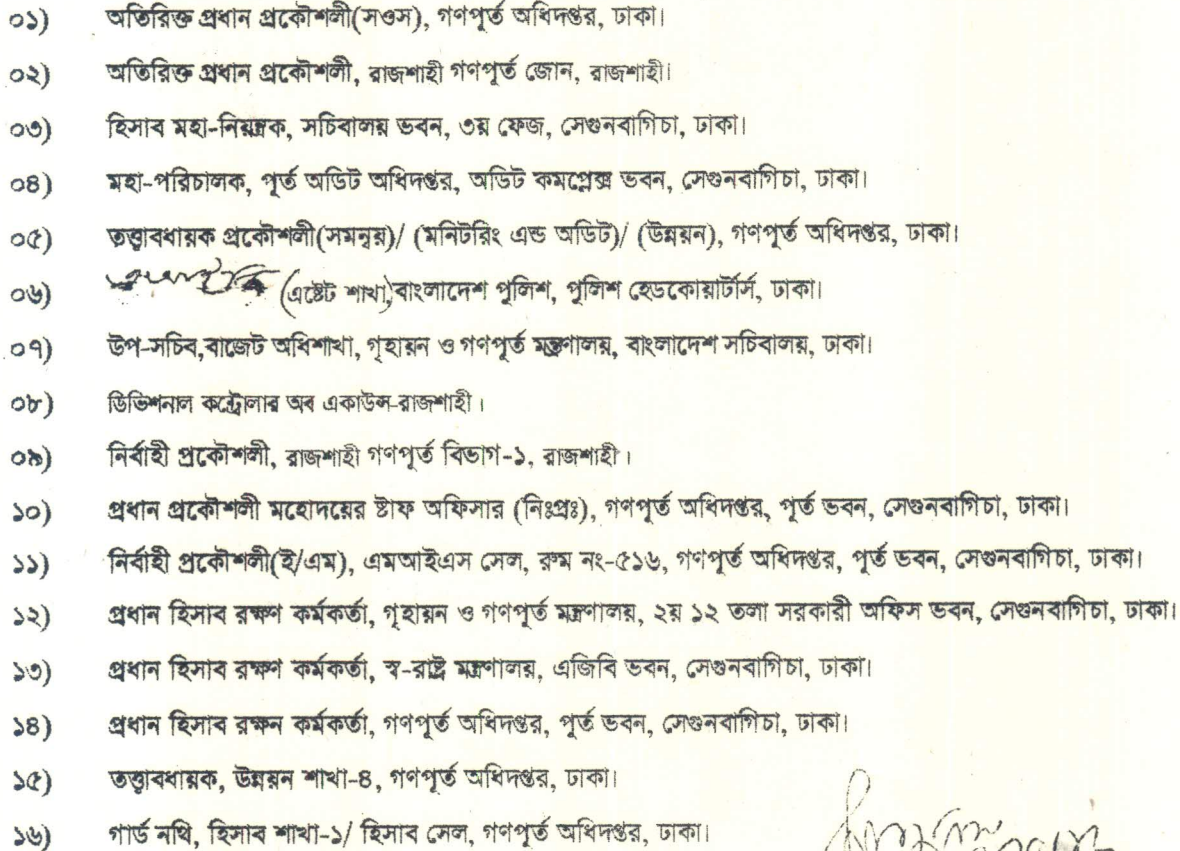 ০১) অতিরিক্ত প্রধান প্রকৌশলী(সওস), গণপূর্ত অধিদপ্তর, ঢাকা।
০২) অতিরিক্ত প্রধান প্রকৌশলী, রাজশাহী গণপূর্ত জোন, রাজশাহী।
০৩) হিসাব মহা-নিয়ন্ত্রক, সচিবালয় ভবন, ৩য় ফেজ, সেগুনবাগিচা, ঢাকা।
০৪) মহা-পরিচালক, পূর্ত অডিট অধিদপ্তর, অডিট কমপ্লেক্স ভবন, সেগুনবাগিচা, ঢাকা।
০৫) তত্ত্বাবধায়ক প্রকৌশলী(সমন্বয়)/ (মনিটরিং এন্ড অডিট)/ (উন্নয়ন), গণপূর্ত অধিদপ্তর, ঢাকা।
০৬) (এষ্টেট শাখা)বাংলাদেশ পুলিশ, পুলিশ হেডকোয়ার্টার্স, ঢাকা।
০৭) উপ-সচিব,বাজেট অধিশাখা, গৃহায়ন ও গণপূর্ত মন্ত্রণালয়, বাংলাদেশ সচিবালয়, ঢাকা।
০৮) ডিভিশনাল কন্ট্রোলার অব একাউন্স-রাজশাহী।
০৯) নির্বাহী প্রকৌশলী, রাজশাহী গণপূর্ত বিভাগ-১, রাজশাহী।
১০) প্রধান প্রকৌশলী মহোদয়ের ষ্টাফ অফিসার (নিঃপ্রঃ), গণপূর্ত অধিদপ্তর, পূর্ত ভবন, সেগুনবাগিচা, ঢাকা।
১১) নির্বাহী প্রকৌশলী(ই/এম), এমআইএস সেল, রুম নং-৫১৬, গণপূর্ত অধিদপ্তর, পূর্ত ভবন, সেগুনবাগিচা, ঢাকা।
১২) প্রধান হিসাব রক্ষণ কর্মকর্তা, গৃহায়ন ও গণপূর্ত মন্ত্রণালয়, ২য় ১২ তলা সরকারী অফিস ভবন, সেগুনবাগিচা, ঢাকা।
১৩) প্রধান হিসাব রক্ষণ কর্মকর্তা, স্ব-রাষ্ট্র মন্ত্রণালয়, এজিবি ভবন, সেগুনবাগিচা, ঢাকা।
১৪) প্রধান হিসাব রক্ষন কর্মকর্তা, গণপূর্ত অধিদপ্তর, পূর্ত ভবন, সেগুনবাগিচা, ঢাকা।
১৫) তত্ত্বাবধায়ক, উন্নয়ন শাখা-৪, গণপূর্ত অধিদপ্তর, ঢাকা।
১৬) গার্ড নথি, হিসাব শাখা-১/ হিসাব সেল, গণপূর্ত অধিদপ্তর, ঢাকা।